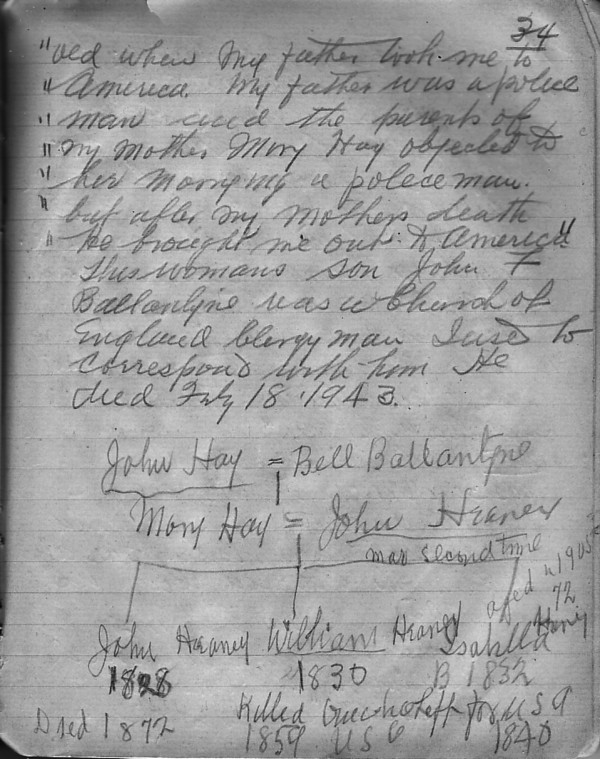 34
"old when my father took me to
" America. My father was a police
" man and the parents of
" my mother Mary Hay objected to
" her marrying a policeman.
" but after my mothers death
" he brought me out to America"
this womans son John F
Ballantyne was a Church of
England Clergyman I used to
correspond with him He
died July 18. 1943.
John Hay = Bell Ballantyne
Mary Hay = John Heaney
mar second time
aged in 1905
72
John Heaney William Heaney Isabella Heaney
1828 1830 B 1832
Died 1872 Killed for USA
1859 US 1840